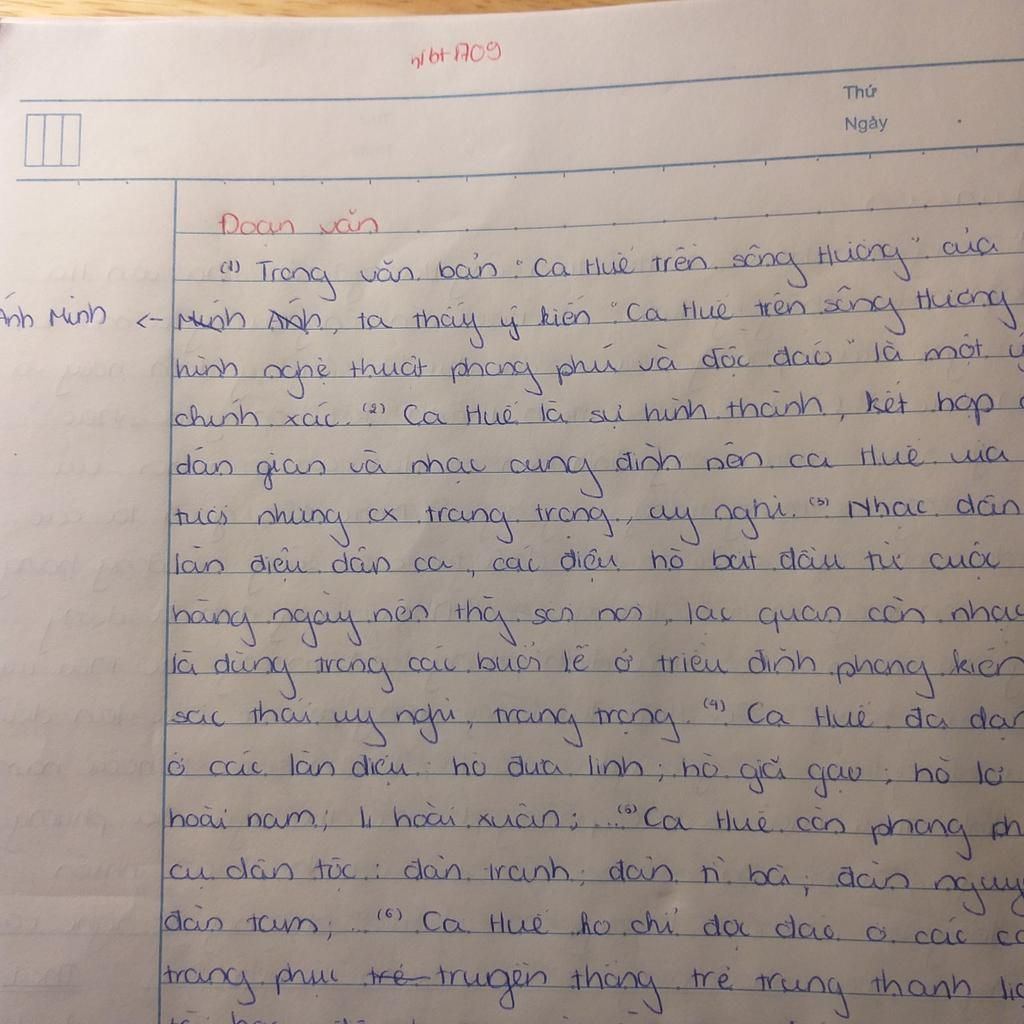 n/bt 1709
Thứ
Ngày
Đoạn văn
(1) Trong văn bản "Ca Huế trên sông Hương" của
Ánh Minh <- Minh Ánh, ta thấy ý kiến "Ca Huế trên sông Hương
hình nghệ thuật phong phú và độc đáo" là một ý
chính xác. (2) Ca Huế là sự hình thành, kết hợp
dân gian và nhạc cung đình nên ca Huế vừa
tươi nhưng cx trang trọng, uy nghi. (3) Nhạc dân
làn điệu dân ca, các điệu hò bắt đầu từ cuộc
hàng ngày nên thg sôi nổi, lạc quan còn nhạc
là dùng trong các buổi lễ ở triều đình phong kiến
sắc thái uy nghi, trang trọng. (4) Ca Huế đa dạn
ở các làn điệu: hò đưa linh; hò giã gạo; hò lơ
hoài nam; lí hoài xuân; ... (5) Ca Huế còn phong ph
cụ dân tộc: đàn tranh; đàn tì bà; đàn nguy
đàn tam; ... (6) Ca Huế ko chỉ độc đáo ở các
trang phục trẻ truyền thống trẻ trung thanh lịc